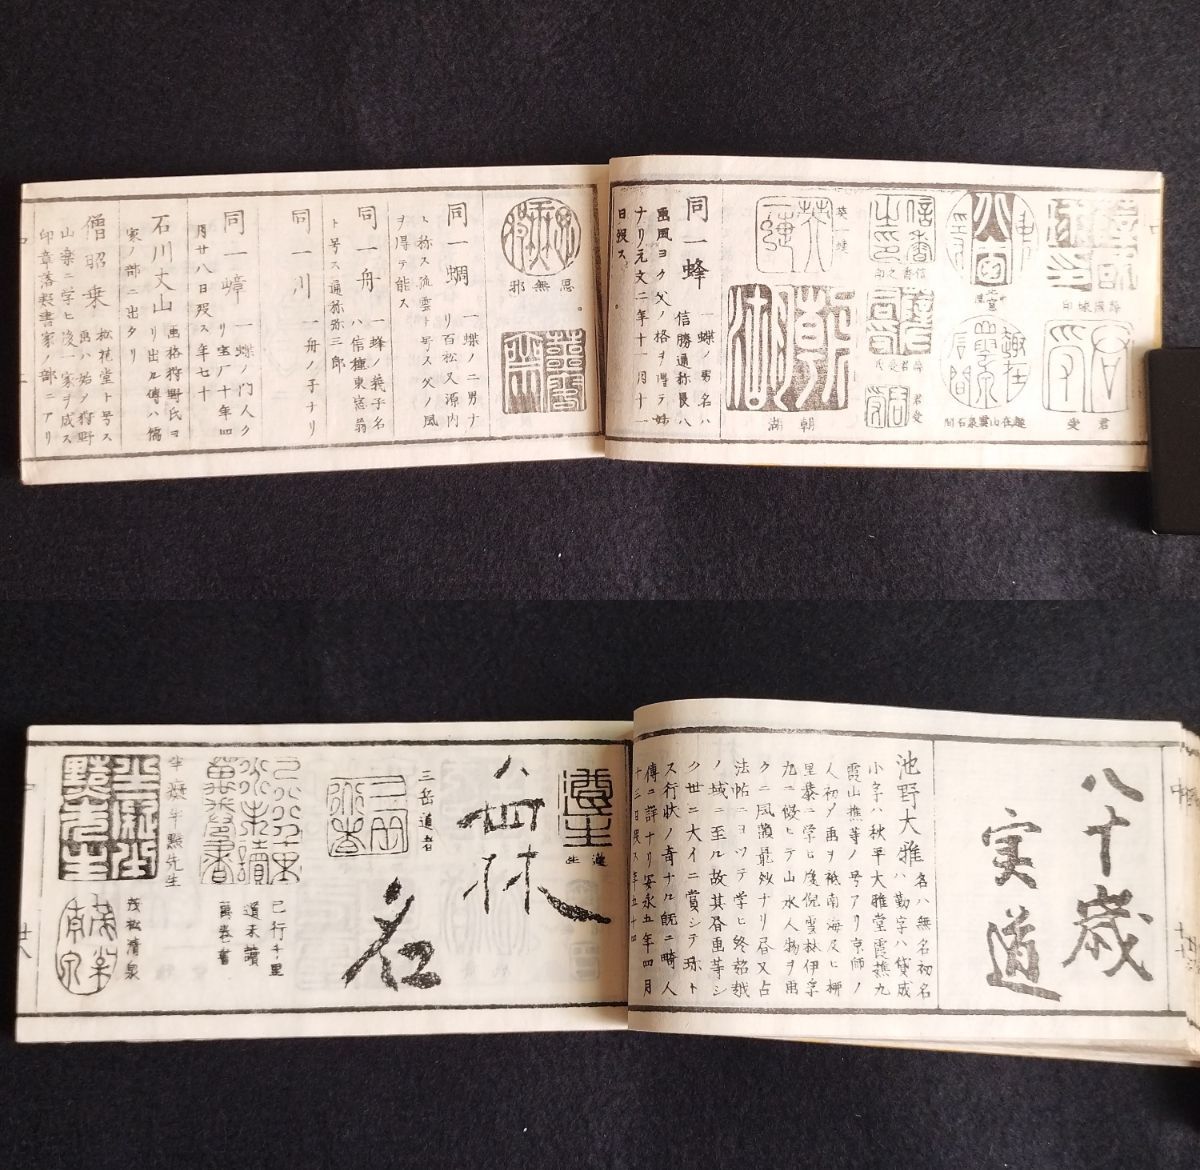 薛國球印
君受
趣在山雲泉石間
信香之印
君受
英一蝶
朝湖
同一蜂 一蝶ノ男名ハ
信勝通称長八
画風ヨク父ノ格ヲ得テ妙
ナリ元文二年十一月十二
日歿ス
思無邪
同一蜩 一蝶ノ二男ナ
リ百松又源内
ト称ス流雲ト号ス父ノ風
ヲ得テ能ス
同一舟 一蜂ノ義子名
ハ信種東窓翁
ト号ス通称弥三郎
同一川 一舟ノ子ナリ
同一嶂 一蝶ノ門人ク
リ宝厂十年四
月廿八日歿ス年七十
石川丈山 画格狩野氏ヨ
リ出ル傳ハ儒
家ノ部ニ出タリ
僧昭乗 松花堂ト号ス
画ハ始メ狩野
山楽ニ学ヒ後一家ヲ成ス
印章落款書家ノ部ニアリ
八十歳
実道
池野大雅 名ハ無名初名
ハ勤字ハ貸成
小字ハ秋平大雅堂霞樵九
霞山樵等ノ号アリ京師ノ
人初メ画ヲ祇南海及ヒ柳
里恭ニ学ヒ度倪雲林伊孚
九ニ倣ヒテ山水人物ヲ画
クニ風瀟最妙ナリ昼又占
法帖ニヨツテ学ヒ終超越
ノ域ニ至ル故其書画等シ
ク世ニ大イニ賞シテ珎ト
ス行状ノ奇ナル既ニ畸人
傳ニ詳ナリ安永五年四月
十三日歿ス年五十四
遵生
三岳道者
名
已行千里
道未讀
萬巻書
半癡半黠先生
茂松清泉